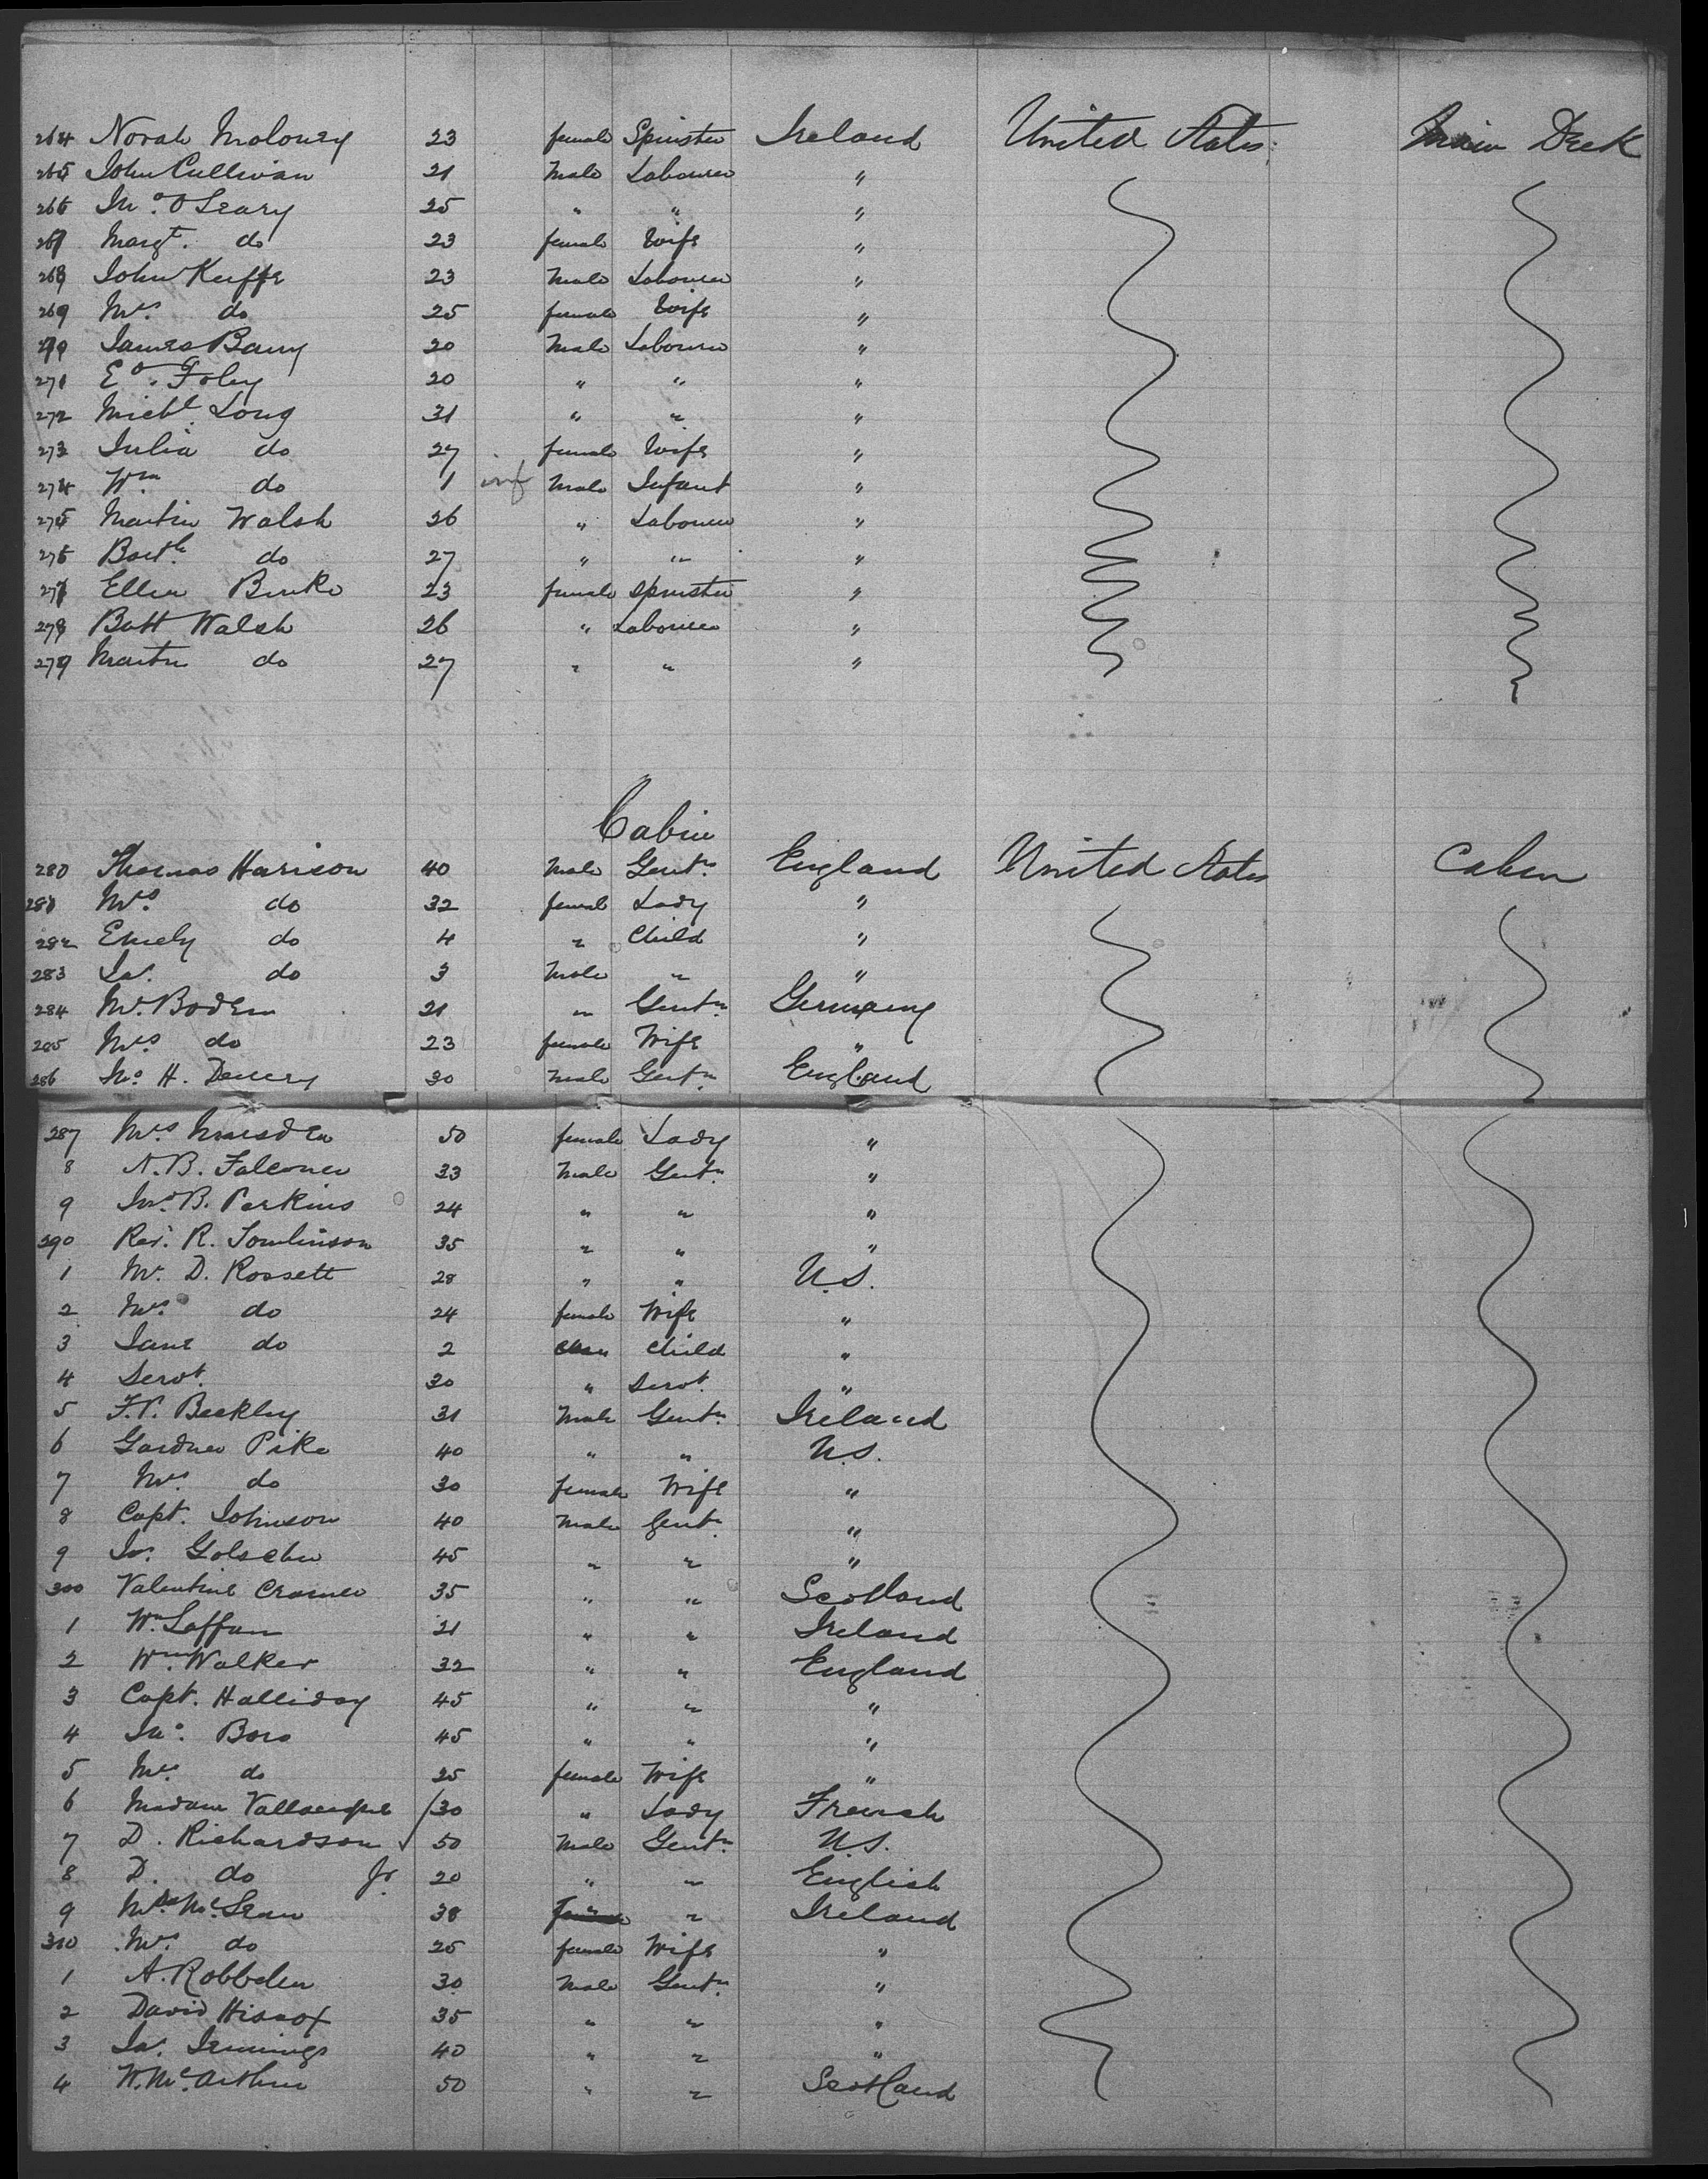 264 Norah Moloney 23 female Spinster Ireland United States Main Deck
265 John Cullivan 21 Male Labourer "
266 Jno. O'Leary 25 " " "
267 Margt. do 23 female Wife "
268 John Kuffe 23 Male Labourer "
269 Mrs. do 25 female Wife "
270 James Barry 20 Male Labourer "
271 Ed. Foley 20 " " "
272 Michl. Long 31 " " "
273 Julia do 27 female Wife "
274 Wm do 1 inf Male Infant "
275 Martin Walsh 26 " Labourer "
276 Barth. do 27 " " "
277 Ellen Burke 23 female Spinster "
278 Batt Walsh 26 " Labourer "
279 Martin do 27 " " "
Cabin
280 Thomas Harison 40 Male Gentn. England United States Cabin
281 Mrs. do 32 female Lady "
282 Emely do 4 " Child "
283 Jas. do 3 Male " "
284 Mr. Boden 21 " Gentn. Germany
285 Mrs do 23 female Wife "
286 Jno. H. 30 Male Gentn. England
287 Mrs 50 female Lady "
8 A. B. Falconer 33 Male Gentn. "
9 Jno. B. Perkins 24 " " "
290 Rev. R. Tomlinson 35 " " "
1 Mr. D. Rossett 28 " " U.S.
2 Mrs. do 24 female Wife "
3 Jane do 2 Child "
4 Servt. 30 " Servt. "
5 F.P. Beckley 31 Male Gentn. Ireland
6 Gardner Pike 40 " " U.S.
7 Mrs. do 30 female Wife "
8 Capt. Johnson 40 Male Gentn. "
9 Jos. 45 " " "
300 Valentine Cramer 35 " " Scotland
1 Wm Laffan 21 " " Ireland
2 Wm. Walker 32 " " England
3 Capt. Halliday 45 " " "
4 Jno. Bors 45 " " "
5 Mrs. do 25 female Wife "
6 Madam 30 " Lady French
7 D. Richardson 50 Male Gentn. U.S.
8 D. do Jr. 20 " " English
9 McLean 38 " " Ireland
310 Mrs. do 25 female Wife "
1 A. Robbden 30 Male Gentn. "
2 David Hiscox 35 " " "
3 Jas. Jennings 40 " " "
4 W. McArthur 50 " " Scotland